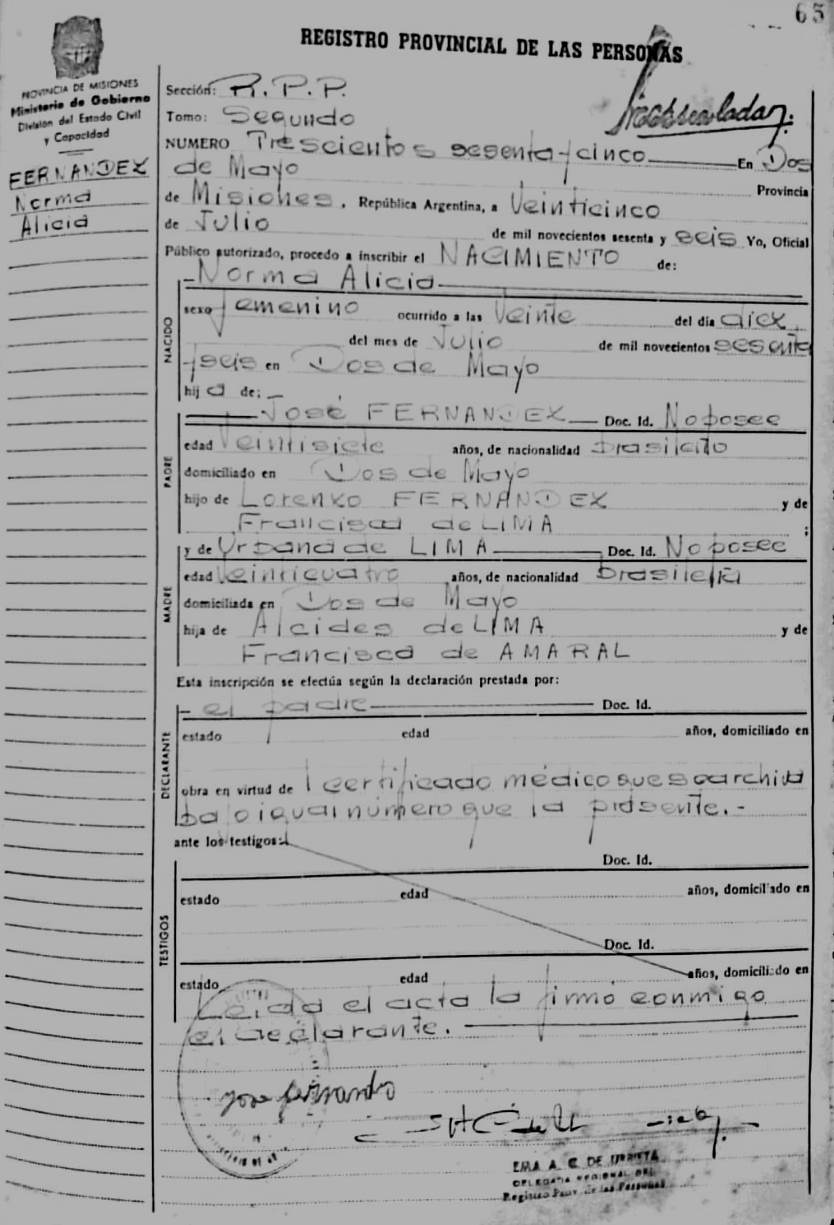 65
REGISTRO PROVINCIAL DE LAS PERSONAS
PROVINCIA DE MISIONES
Ministerio de Gobierno
División del Estado Civil
y Capacidad
FERNANDEZ
Norma
Alicia
Sección: R.P.P.
Tomo: Segundo
NUMERO Trescientos sesenta y cinco En Dos
de Mayo Provincia
de Misiones, República Argentina, a Veinticinco
de Julio de mil novecientos sesenta y seis Yo, Oficial
Público autorizado, procedo a inscribir el NACIMIENTO de:
Norma Alicia
NACIDO
sexo femenino ocurrido a las Veinte del día diez
del mes de Julio de mil novecientos sesenta
y seis en Dos de Mayo
hij a de:
PADRE
José FERNANDEZ Doc. Id. No posee
edad Veintisiete años, de nacionalidad brasileño
domiciliado en Dos de Mayo
hijo de Lorenzo FERNANDEZ y de
Francisca de LIMA ;
MADRE
y de Urbana de LIMA Doc. Id. No posee
edad Veinticuatro años, de nacionalidad brasileña
domiciliada en Dos de Mayo
hija de Alcides de LIMA y de
Francisca de AMARAL
Esta inscripción se efectúa según la declaración prestada por:
DECLARANTE
- el padre Doc. Id.
estado edad años, domiciliado en
obra en virtud de 1 certificado médico que se archiva
bajo igual número que la presente.-
ante los testigos:
TESTIGOS
Doc. Id.
estado edad años, domiciliado en
Doc. Id.
estado edad años, domiciliado en
Leida el acta la firmó conmigo
el declarante.
EMA A. C. DE URRUTA
DELEGADA REGIONAL DEL
Registro Prov. de las Personas